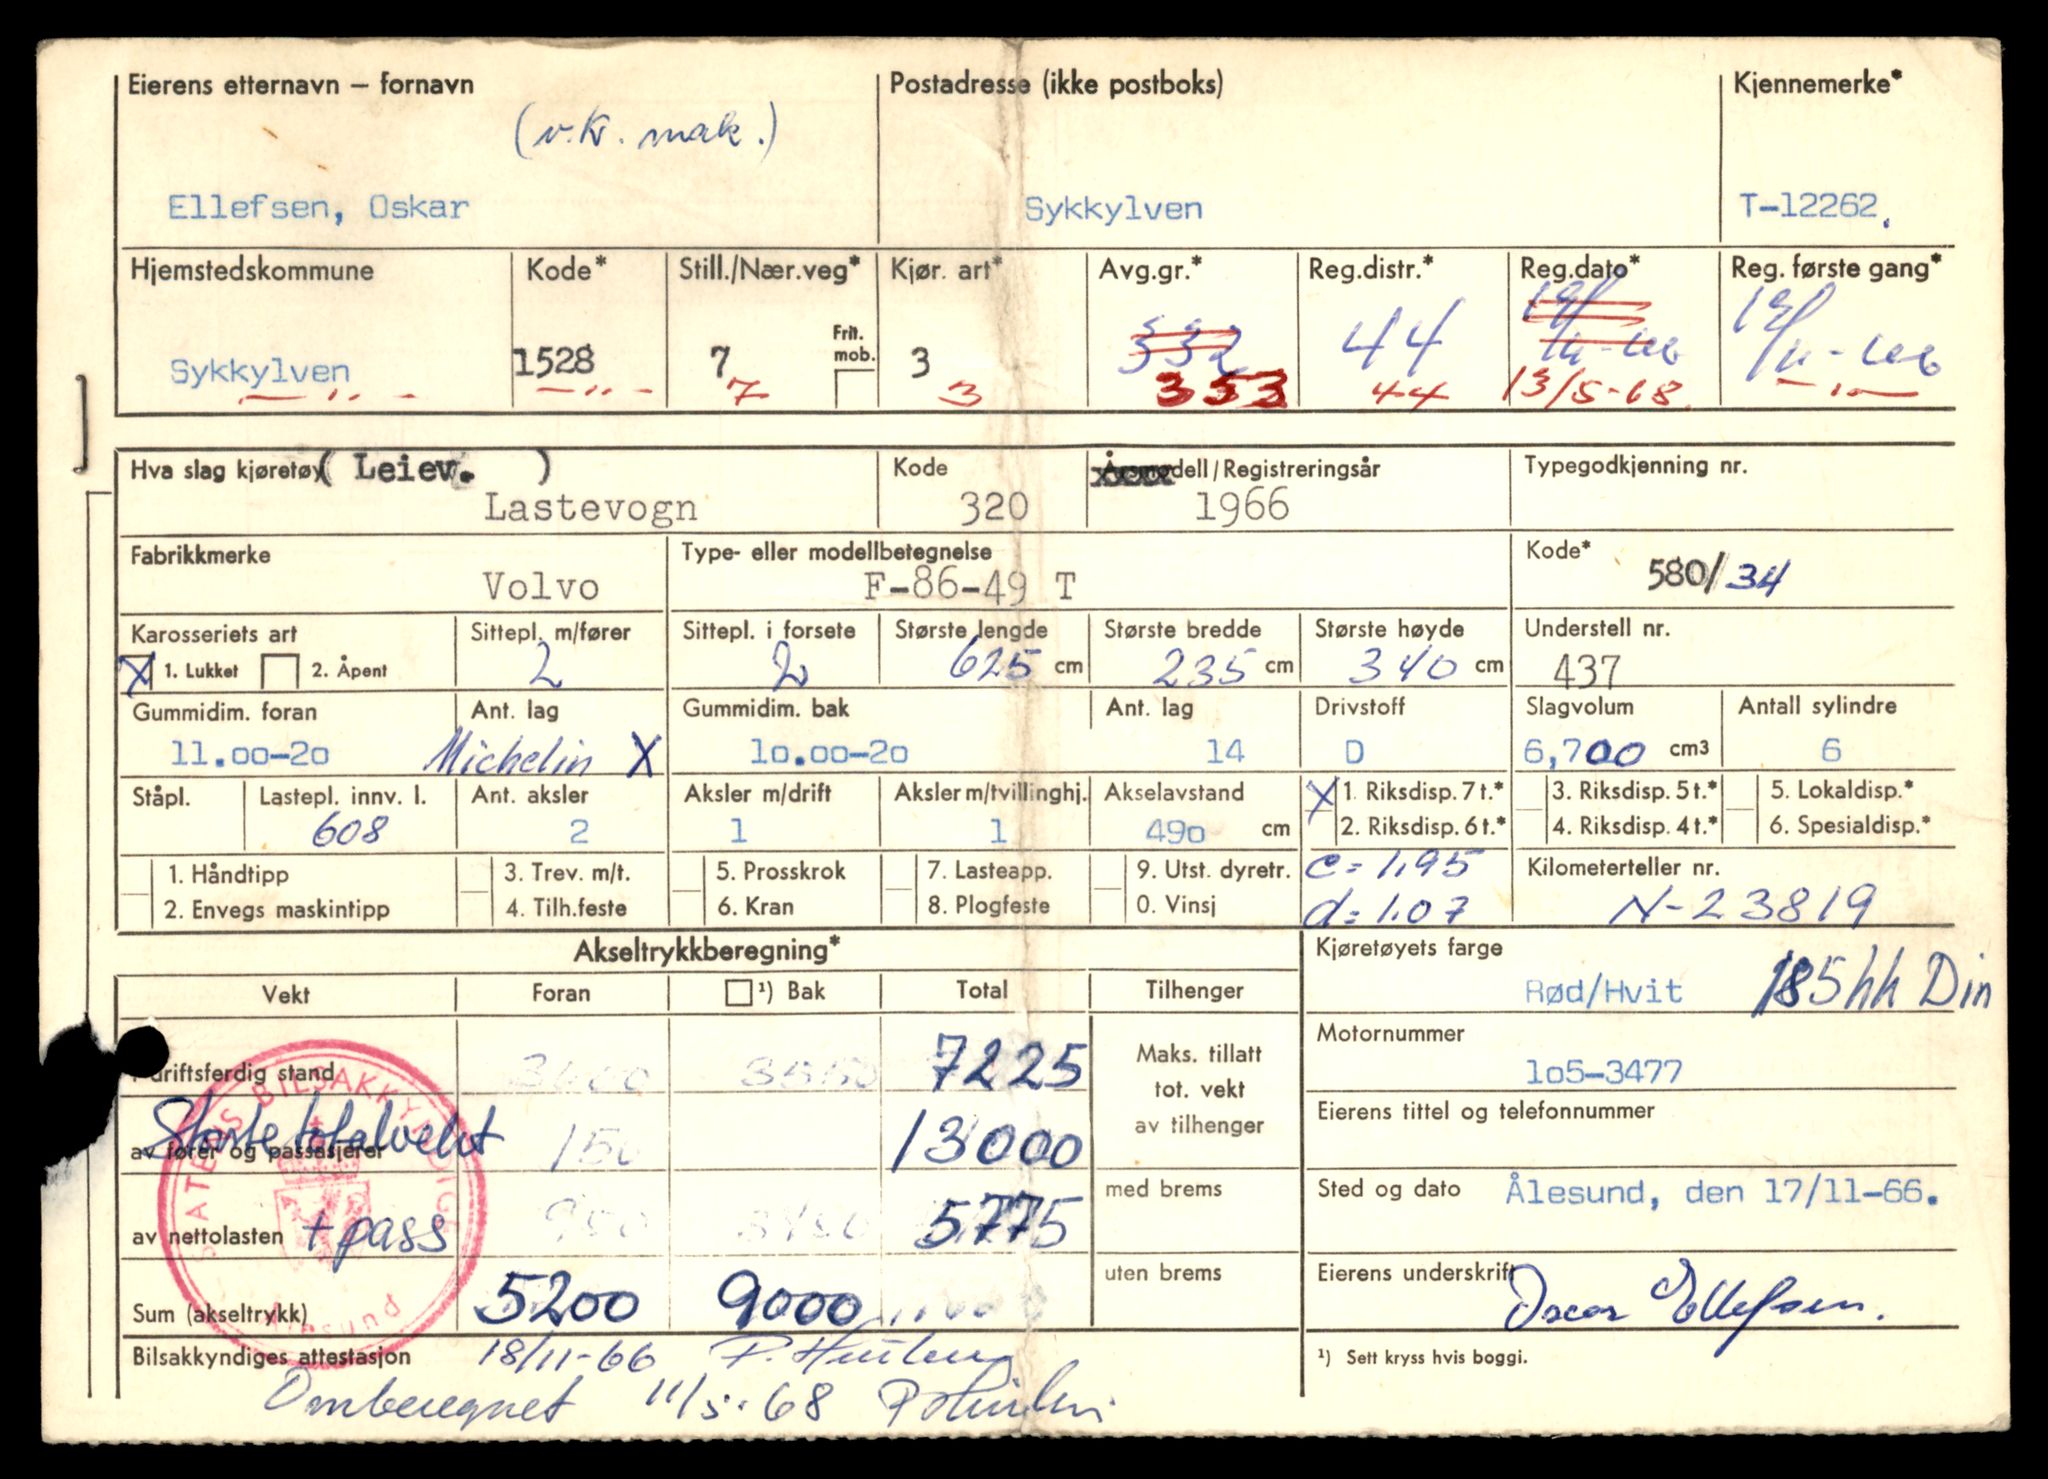 Eierens etternavn – fornavn Postadresse (ikke postboks) Kjennemerke*
(v.k. mak.)
Ellefsen, Oskar Sykkylven T-12262.
Hjemstedskommune Kode* Still./Nær.veg* Kjør. art* Avg.gr.* Reg.distr.* Reg.dato* Reg. første gang*
Frit. mob.
Sykkylven 1528 7 3 332 44
7 3 353 44 13/5-68.
Hva slag kjøretøy (Leiev. ) Kode Årsmodell/Registreringsår Typegodkjenning nr.
Lastevogn 320 1966
Fabrikkmerke Type- eller modellbetegnelse Kode*
Volvo F-86-49 T 580/34
Karosseriets art Sittepl. m/fører Sittepl. i forsete Største lengde Største bredde Største høyde Understell nr.
X 1. Lukket 2. Åpent 2 2 625 cm 235 cm 340 cm 437
Gummidim. foran Ant. lag Gummidim. bak Ant. lag Drivstoff Slagvolum Antall sylindre
11.00-20 Michelin X 10.00-20 14 D 6,700 cm3 6
Ståpl. Lastepl. innv. l. Ant. aksler Aksler m/drift Aksler m/tvillinghj. Akselavstand X 1. Riksdisp. 7 t.* 3. Riksdisp. 5 t.* 5. Lokaldisp.*
608 2 1 1 490 cm 2. Riksdisp. 6 t.* 4. Riksdisp. 4 t.* 6. Spesialdisp.*
1. Håndtipp 3. Trev. m/t. 5. Prosskrok 7. Lasteapp. 9. Utst. dyretr. c = 1,95 Kilometerteller nr.
2. Envegs maskintipp 4. Tilh.feste 6. Kran 8. Plogfeste 0. Vinsj d = 1.07 N-23819
Akseltrykkberegning* Kjøretøyets farge
Vekt Foran ¹) Bak Total Tilhenger Rød/Hvit 185 hk Din
driftsferdig stand 3550 7225 Maks. tillatt tot. vekt av tilhenger Motornummer
105-3477
Største totalvekt 13000 Eierens tittel og telefonnummer
av fører og passasjerer 150
med brems Sted og dato Ålesund, den 17/11-66.
av nettolasten + pass 5775
uten brems Eierens underskrift
Sum (akseltrykk) 5200 9000 Oscar Ellefsen.
STATENS BILSAKKYNDIGE
Ålesund
Bilsakkyndiges attestasjon 18/11-66 ¹) Sett kryss hvis boggi.
Omberegnet 11/5-68